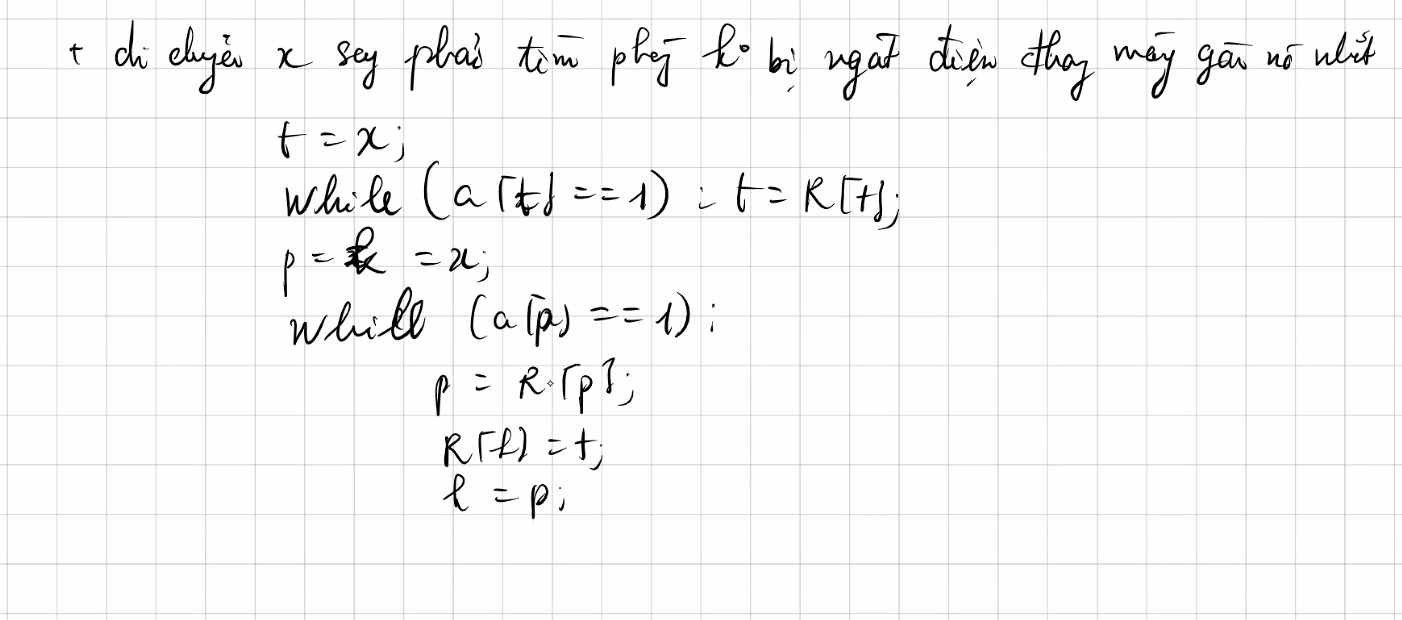 + di chuyển x sag phải tìm phòg ko bị ngắt điện thag máy gần nó nhất
t = x;
while (a[t] == 1) : t = R[t];
p = l = x;
while (a[p] == 1) :
p = R[p];
R[l] = t;
l = p;